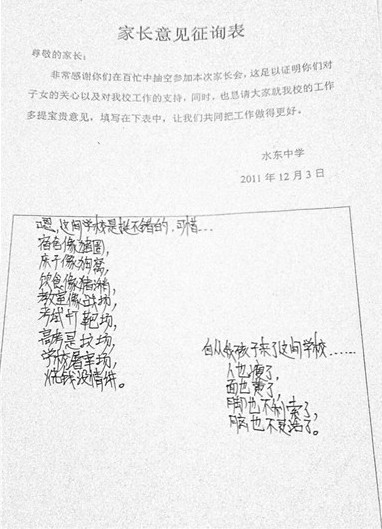 家长意见征询表
尊敬的家长:
非常感谢你们在百忙中抽空参加本次家长会,这足以证明你们对
子女的关心以及对我校工作的支持,同时,也恳请大家就我校的工作
多提宝贵意见,填写在下表中,让我们共同把工作做得更好。
水东中学
2011年12月3日
嗯,这间学校是挺不错的,可惜...
宿舍像猪圈,
床子像狗窝,
饮食像猪潲,
教室像战场,
考试打靶场,
高考是坟场,
学校屠宰场,
烧钱没情讲。
自从我孩子来了这间学校……
人也瘦了,
面也黄了,
脚也不利索了,
脑也不灵活了。